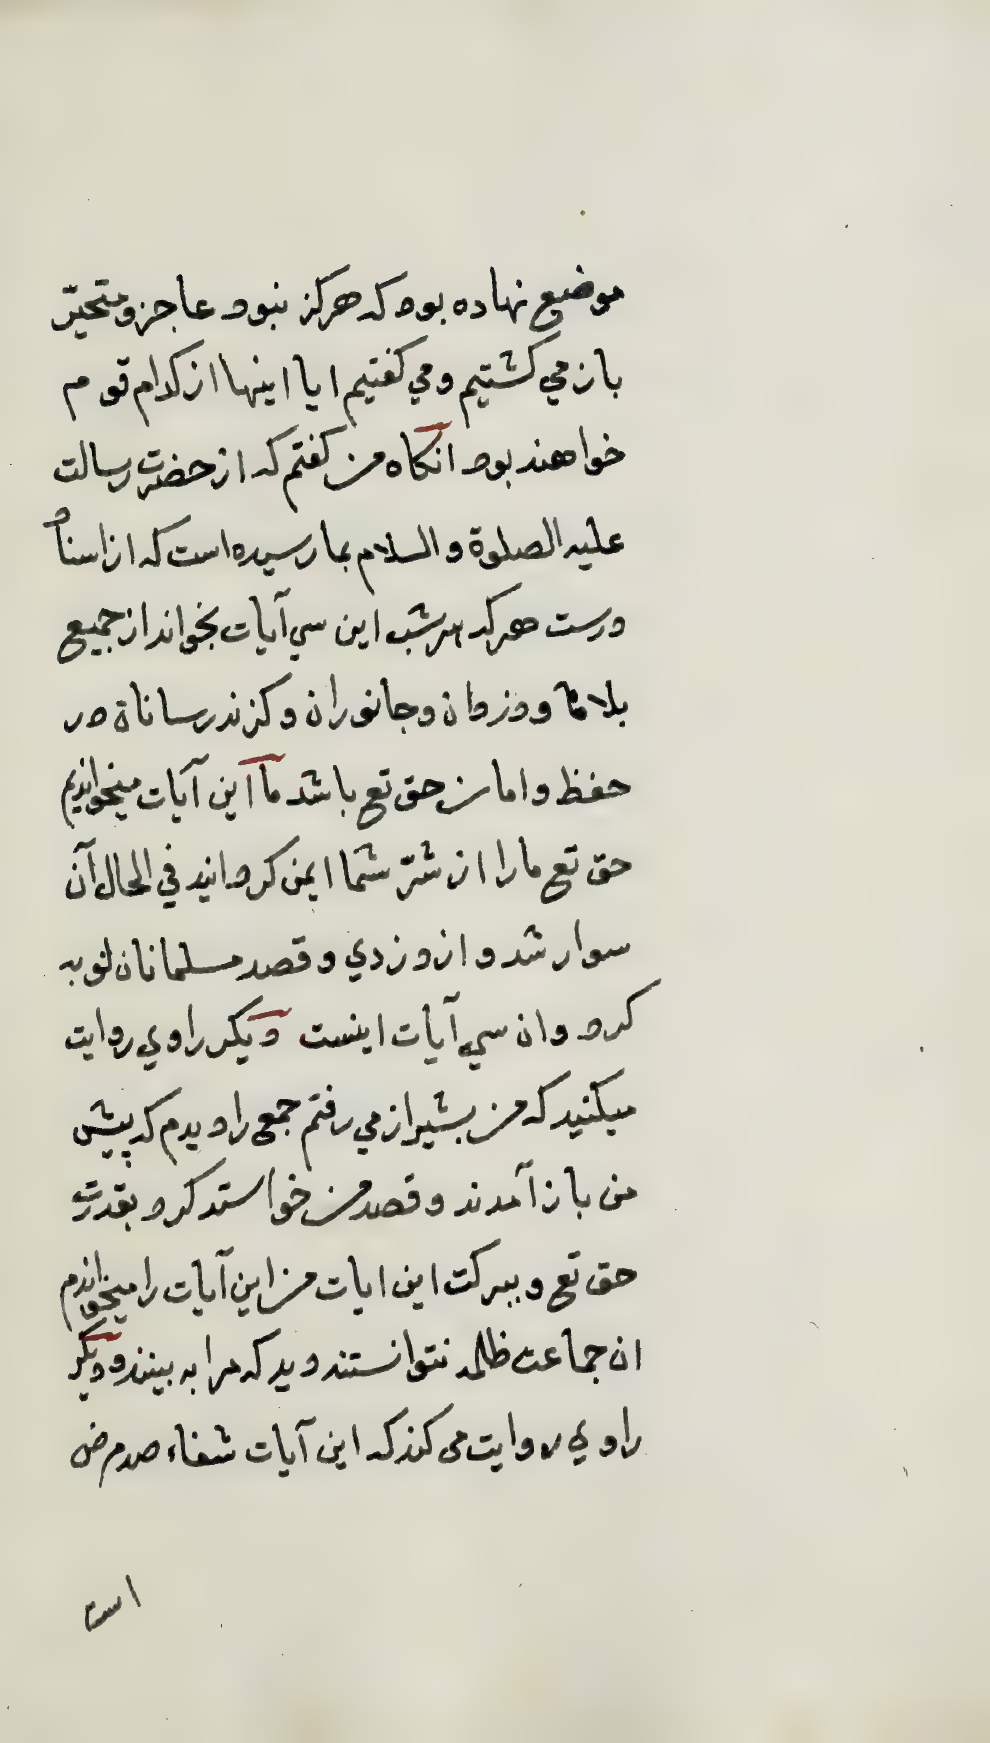 موضیع نهاده بود که هرکز نبود عاجز و متحیّر
باز می کشتیم و می کفتیم ایا اینها از کدام قوم
خواهند بود انکاه من کفتم که از حضرت رسالت
علیه الصلوة والسلام بما رسیده است که از اسناد
درست هرکه هر شب این سی آیات بخواند از جمیع
بلاها و دزدان و جانوران و کزندرسانان در
حفظ و امان حق تع باشد ما این آیات میخواندیم
حق تع مارا از شرّ شما ایمن کردانید فی الحال آن
سوار شد و از دزدی و قصد مسلمانان توبه
کرد وان سی آیات اینست دیکر راوی روایت
میکنید که من بشیراز می رفتم جمعی را دیدم که پیش
من باز آمدند و قصد من خواستد کرد بقدرت
حق تع و ببرکت این ایات من این آیات را میخواندم
ان جماعت ظلمه نتوانستند دید که مرا به بینند و دیکر
راوی روایت می کند که این آیات شفاء صد مرض
است